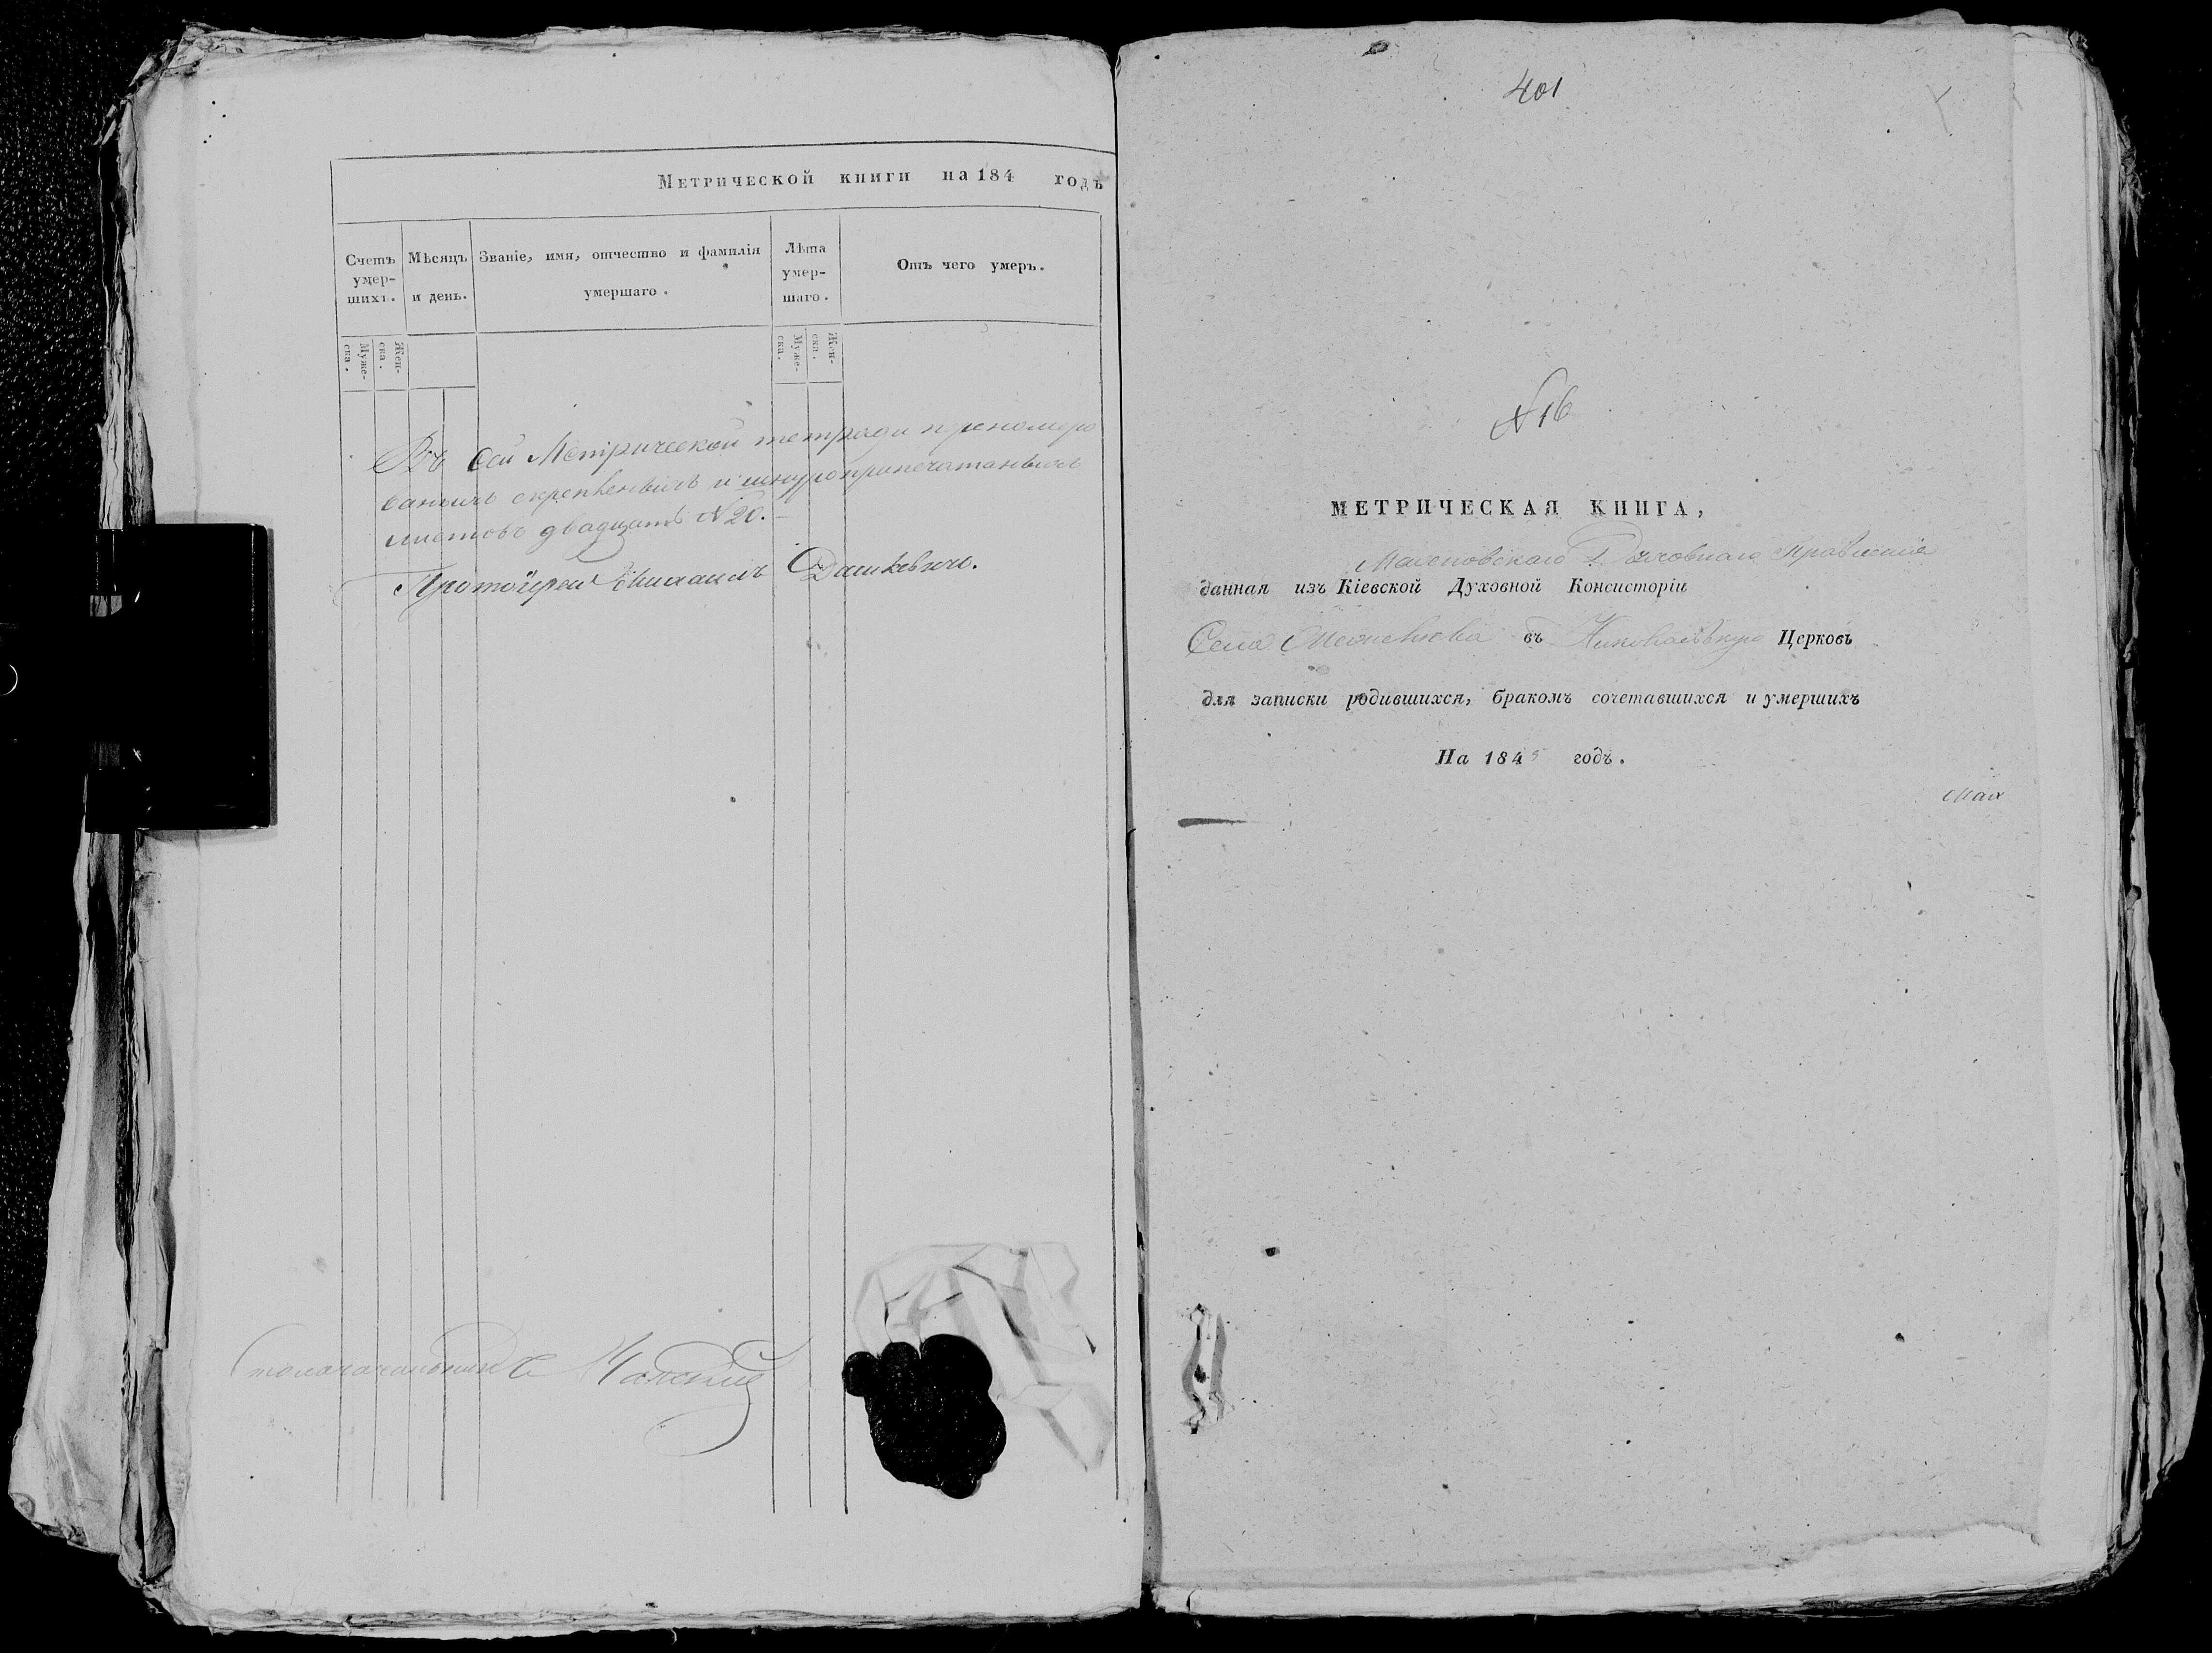 Метрической книги на 184 годъ
Счетъ умер-шихъ.
Мѣсяцъ и день.
Званіе, имя, отчество и фамилія умершаго.
Лѣта умер-шаго.
Отъ чего умеръ.
Муже-ска.
Жен-ска.
Муже-ска.
Жен-ска.
Въ сей Метрической тетради прономеро
ваныхъ скрепленыхъ и шнуроприпечатаныхъ
листовъ двадцать №20.
Протоіерей Михаилъ Дашкевичъ.
Столоначальникъ
401
№ 16
МЕТРИЧЕСКАЯ КНИГА,
Духовнаго Правленія
данная изъ Кіевской Духовной Консисторіи
Села въ Николаевскую Церковь
для записки родившихся, бракомъ сочетавшихся и умершихъ
На 1845 годъ.
Мах